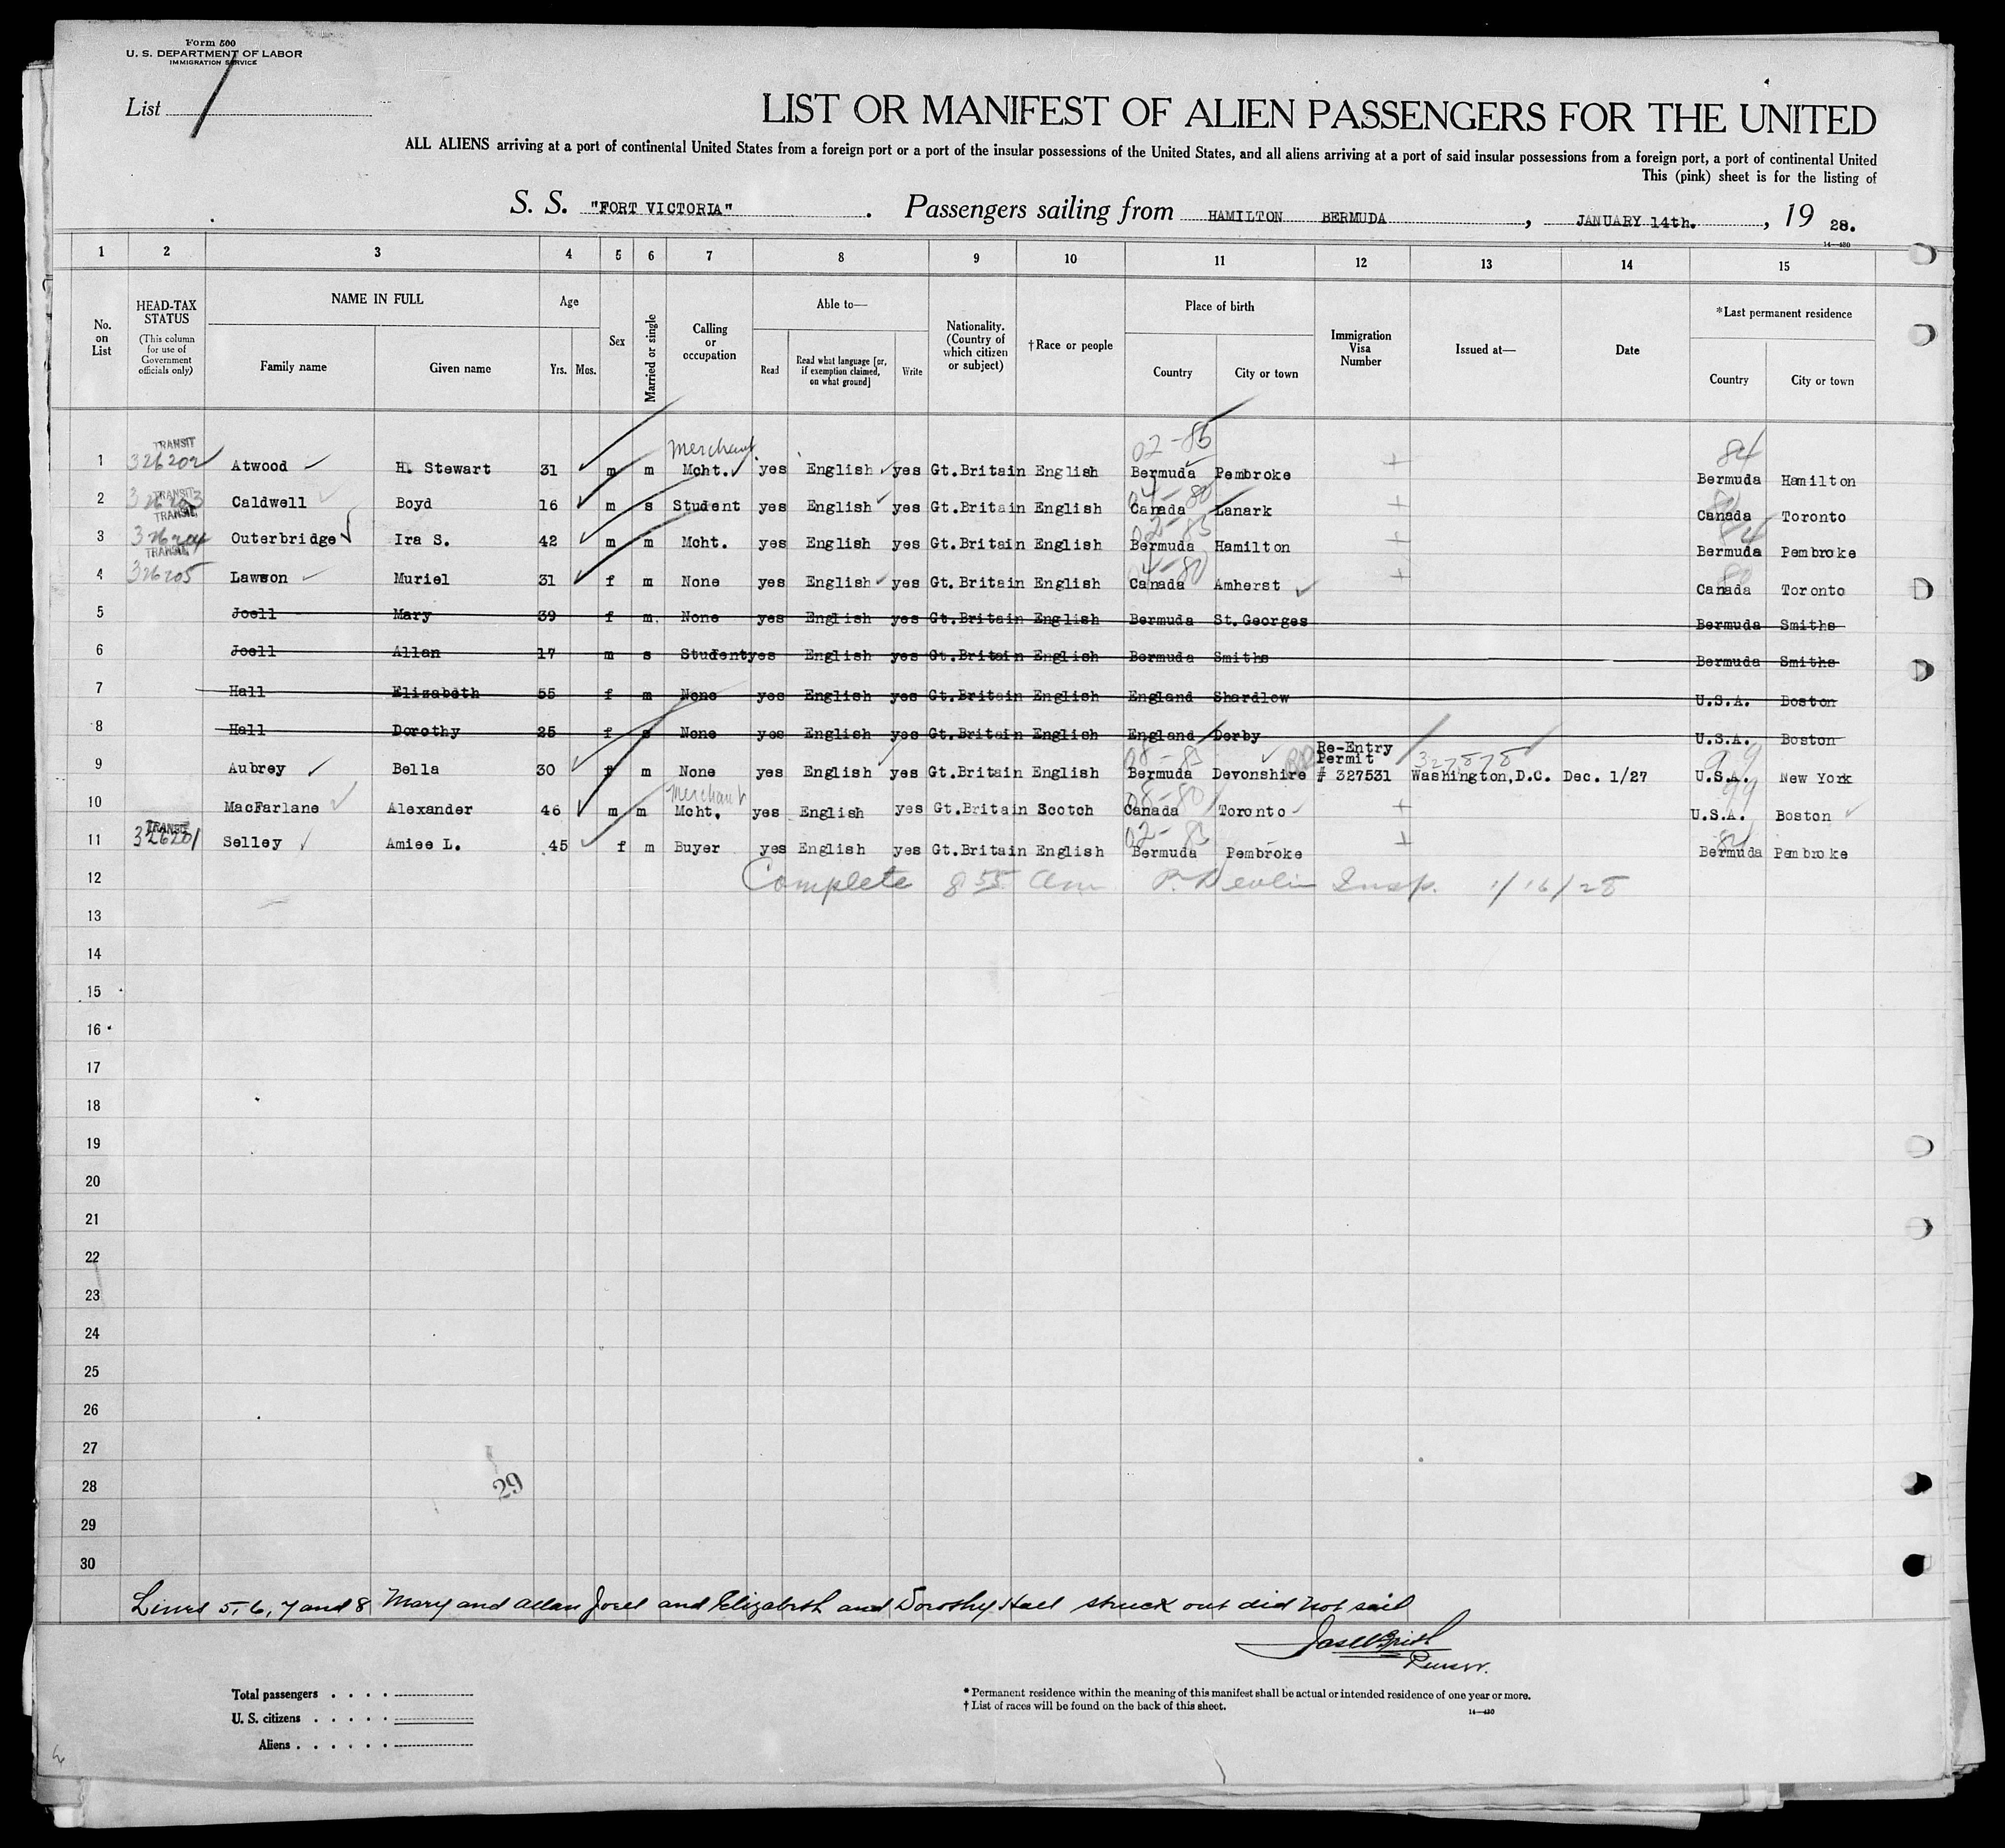 Form 500
U. S. DEPARTMENT OF LABOR
IMMIGRATION SERVICE
List 1
LIST OR MANIFEST OF ALIEN PASSENGERS FOR THE UNITED
ALL ALIENS arriving at a port of continental United States from a foreign port or a port of the insular possessions of the United States, and all aliens arriving at a port of said insular possessions from a foreign port, a port of continental United
This (pink) sheet is for the listing of
S. S. "FORT VICTORIA" . Passengers sailing from HAMILTON BERMUDA , JANUARY 14th. , 19 28.
14—430
1 2 3 4 5 6 7 8 9 10 11 12 13 14 15
No. on List
HEAD-TAX STATUS (This column for use of Government officials only)
NAME IN FULL Family name Given name
Age Yrs. Mos.
Sex
Married or single
Calling or occupation
Able to— Read Read what language [or, if exemption claimed, on what ground] Write
Nationality. (Country of which citizen or subject)
†Race or people
Place of birth Country City or town
Immigration Visa Number
Issued at—
Date
*Last permanent residence Country City or town
TRANSIT merchant 02-85 84
1 326202 Atwood H. Stewart 31 m m Mcht. yes English yes Gt.Britain English Bermuda Pembroke Bermuda Hamilton
TRANSIT 04-80
2 326203 Caldwell Boyd 16 m s Student yes English yes Gt.Britain English Canada Lanark Canada Toronto
TRANSIT 02-85 84
3 326204 Outerbridge Ira S. 42 m m Mcht. yes English yes Gt.Britain English Bermuda Hamilton Bermuda Pembroke
TRANSIT 04-80 80
4 326205 Lawson Muriel 31 f m None yes English yes Gt.Britain English Canada Amherst Canada Toronto
5 Joell Mary 39 f m. None yes English yes Gt.Britain English Bermuda St.Georges Bermuda Smiths
6 Joell Allan 17 m s Student yes English yes Gt.Britain English Bermuda Smiths Bermuda Smiths
7 Hall Elizabeth 55 f m None yes English yes Gt.Britain English England Shardlow U.S.A. Boston
8 Hall Dorothy 25 f s None yes English yes Gt.Britain English England Derby U.S.A. Boston
08-85 Re-Entry Permit 327878 99
9 Aubrey Bella 30 f m None yes English yes Gt.Britain English Bermuda Devonshire # 327531 Washington,D.C. Dec. 1/27 U.S.A. New York
merchant 08-80 99
10 MacFarlane Alexander 46 m m Mcht. yes English yes Gt.Britain Scotch Canada Toronto U.S.A. Boston
TRANSIT 02-85 84
11 326201 Selley Amiee L. 45 f m Buyer yes English yes Gt.Britain English Bermuda Pembroke Bermuda Pembroke
12 Complete 8 55 am P. Devlin Insp. 1/16/28
13
14
15
16
17
18
19
20
21
22
23
24
25
26
27
28 29
29
30
Lines 5, 6, 7 and 8 Mary and Allan Joell and Elizabeth and Dorothy Hall struck out did not sail
Purser.
Total passengers
U. S. citizens
Aliens
* Permanent residence within the meaning of this manifest shall be actual or intended residence of one year or more.
† List of races will be found on the back of this sheet.
14—430